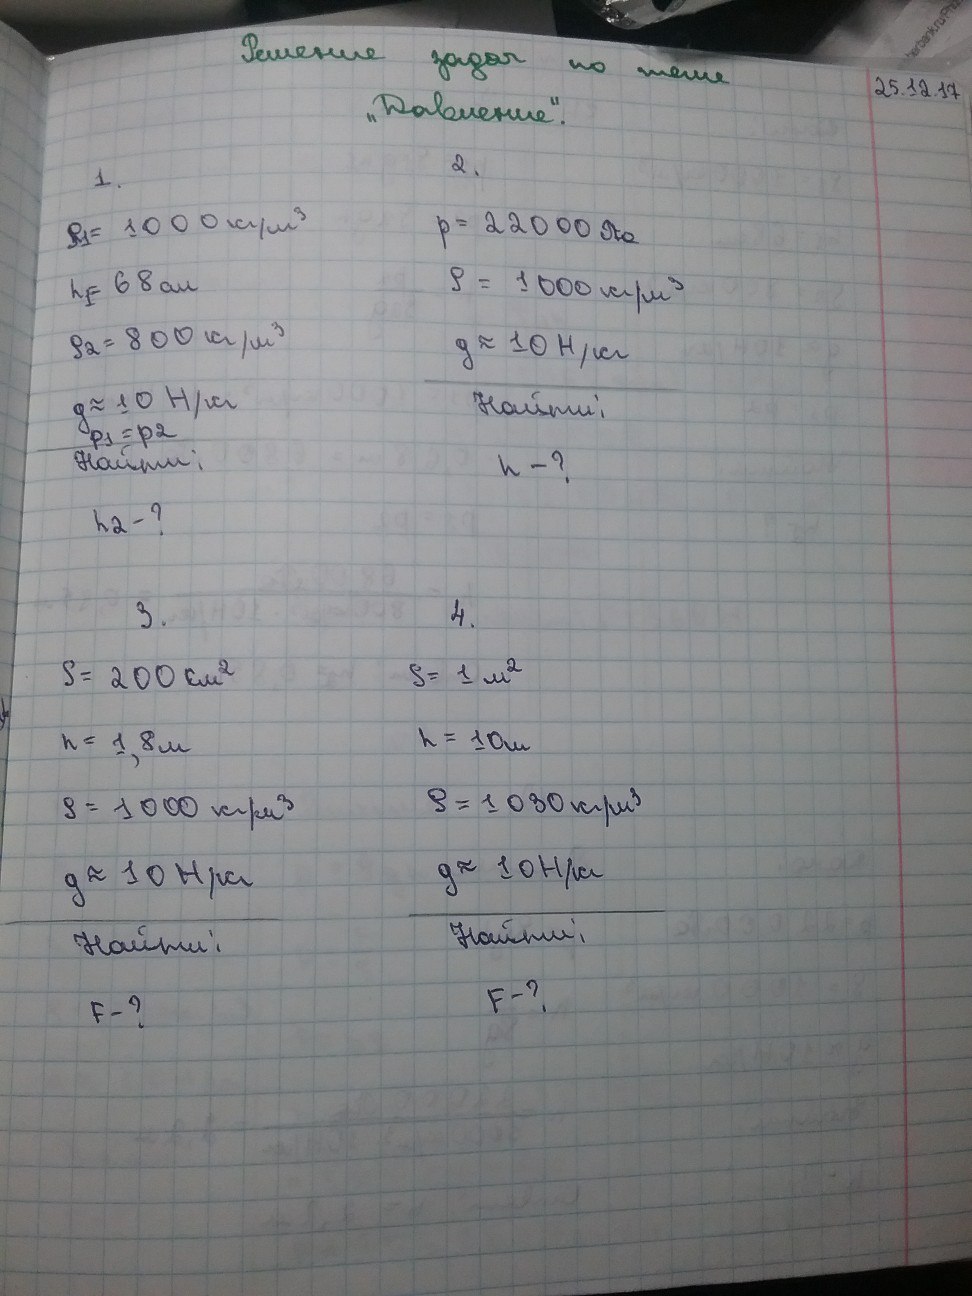 Решение задач по теме
25.12.17
„Давление".
1.
ρ1= 1000 кг/м³
h1= 68 см
ρ2= 800 кг/м³
g≈ 10 Н/кг
p1=p2
Найти:
h2-?
2.
p= 22000 Па
ρ = 1000 кг/м³
g≈ 10 Н/кг
Найти:
h -?
3.
S= 200 см²
h= 1,8м
ρ= 1000 кг/м³
g≈ 10 Н/кг
Найти:
F-?
4.
S= 1 м²
h= 10м
ρ=1030кг/м³
g≈ 10Н/кг
Найти:
F-?